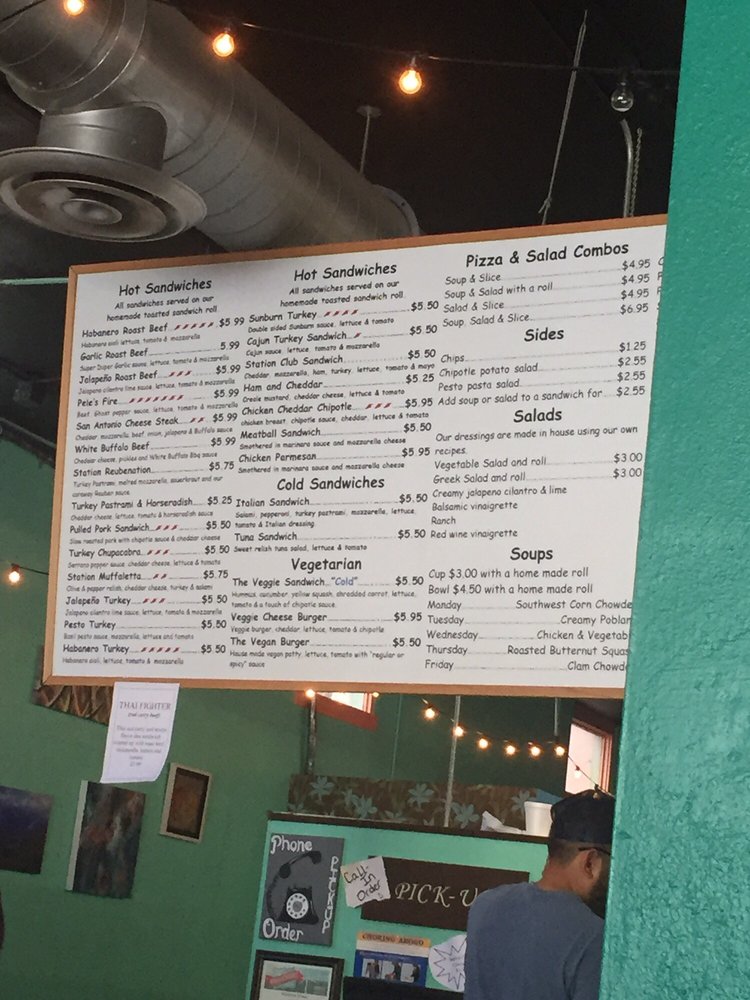 Hot Sandwiches
All sandwiches served on our
homemade toasted sandwich roll
Habanero Roast Beef $5 99
Habanero aioli lettuce, tomato & mozzarella
Garlic Roast Beef 5.99
Super Duper Garlic sauce, lettuce, tomato & mozzarella
Jalapeño Roast Beef $5.99
Jalapeno cilantro lime sauce, lettuce, tomato & mozzarella
Pele's Fire $5.99
Beef, Ghost pepper sauce, lettuce, tomato & mozzarella
San Antonio Cheese Steak $5.99
Cheddar, mozzarella, beef, onion, jalapeno & Buffalo sauce
White Buffalo Beef $5 99
Cheddar cheese, pickles and White Buffalo Bbq sauce
Station Reubenation $5.75
Turkey Pastrami, melted mozzarella, sauerkraut and our
caraway Reuben sauce
Turkey Pastrami & Horseradish $5 25
Cheddar cheese, lettuce, tomato & horseradish sauce
Pulled Pork Sandwich $5 50
Slow roasted pork with chipotle sauce & cheddar cheese
Turkey Chupacabra $5 50
Serrano pepper sauce, cheddar cheese, lettuce & tomato
Station Muffaletta $5.75
Olive & pepper relish, cheddar cheese, turkey & salami
Jalapeño Turkey $5 50
Jalapeno cilantro lime sauce, lettuce, tomato & mozzarella
Pesto Turkey $5.50
Basil pesto sauce, mozzarella, lettuce and tomato
Habanero Turkey $5 50
Habanero aioli, lettuce, tomato & mozzarella
Hot Sandwiches
All sandwiches served on our
homemade toasted sandwich roll
Sunburn Turkey $5 50
Double sided Sunburn sauce, lettuce & tomato
Cajun Turkey Sandwich $5 50
Cajun sauce, lettuce, tomato & mozzarella
Station Club Sandwich $5 50
Cheddar, mozzarella, ham, turkey, lettuce, tomato & mayo
Ham and Cheddar $5 25
Creole mustard, cheddar cheese, lettuce & tomato
Chicken Cheddar Chipotle $5.95
chicken breast, chipotle sauce, cheddar, lettuce & tomato
Meatball Sandwich $5.50
Smothered in marinara sauce and mozzarella cheese
Chicken Parmesan $5 95
Smothered in marinara sauce and mozzarella cheese
Cold Sandwiches
Italian Sandwich $5 50
Salami, pepperoni, turkey pastrami, mozzarella, lettuce,
tomato & Italian dressing
Tuna Sandwich $5.50
Sweet relish tuna salad, lettuce & tomato
Vegetarian
The Veggie Sandwich "Cold" $5.50
Hummus, cucumber, yellow squash, shredded carrot, lettuce,
tomato & a touch of chipotle sauce
Veggie Cheese Burger $5.95
Veggie burger, cheddar, lettuce, tomato & chipotle
The Vegan Burger $5 50
House made vegan patty, lettuce, tomato with "regular or
spicy" sauce
Pizza & Salad Combos
Soup & Slice $4.95
Soup & Salad with a roll $4.95
Salad & Slice $4 95
Soup, Salad & Slice $6.95
Sides
Chips $1.25
Chipotle potato salad $2.55
Pesto pasta salad $2.55
Add soup or salad to a sandwich for $2.55
Salads
Our dressings are made in house using our own
recipes.
Vegetable Salad and roll $3 00
Greek Salad and roll $3 00
Creamy jalapeno cilantro & lime
Balsamic vinaigrette
Ranch
Red wine vinaigrette
Soups
Cup $3.00 with a home made roll
Bowl $4.50 with a home made roll
Monday Southwest Corn Chowde
Tuesday Creamy Poblan
Wednesday Chicken & Vegetab
Thursday Roasted Butternut Squas
Friday Clam Chowde
THAI FIGHTER
Phone
PICKUP
Order
Call-
In
Order
PICK-U